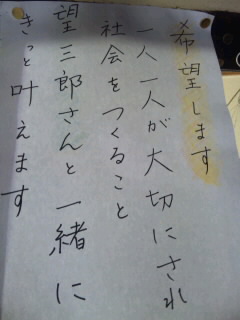 希望します
一人一人が大切にされ
社会をつくること
望三郎さんと一緒に
きっと叶えます